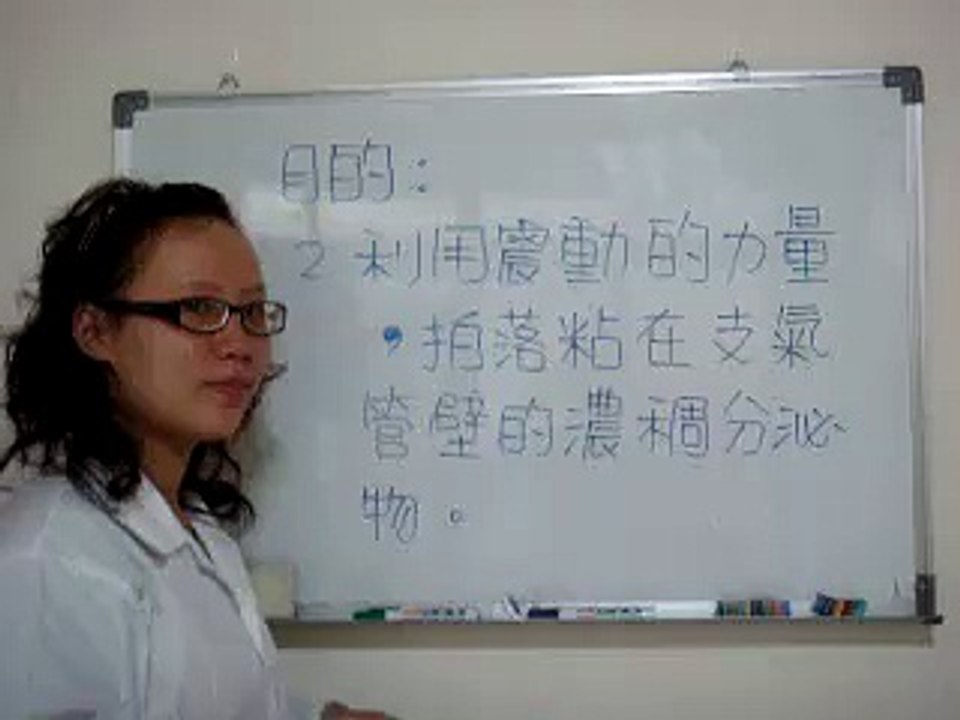 目的:
2 利用震動的力量
,拍落粘在支氣
管壁的濃稠分泌
物。